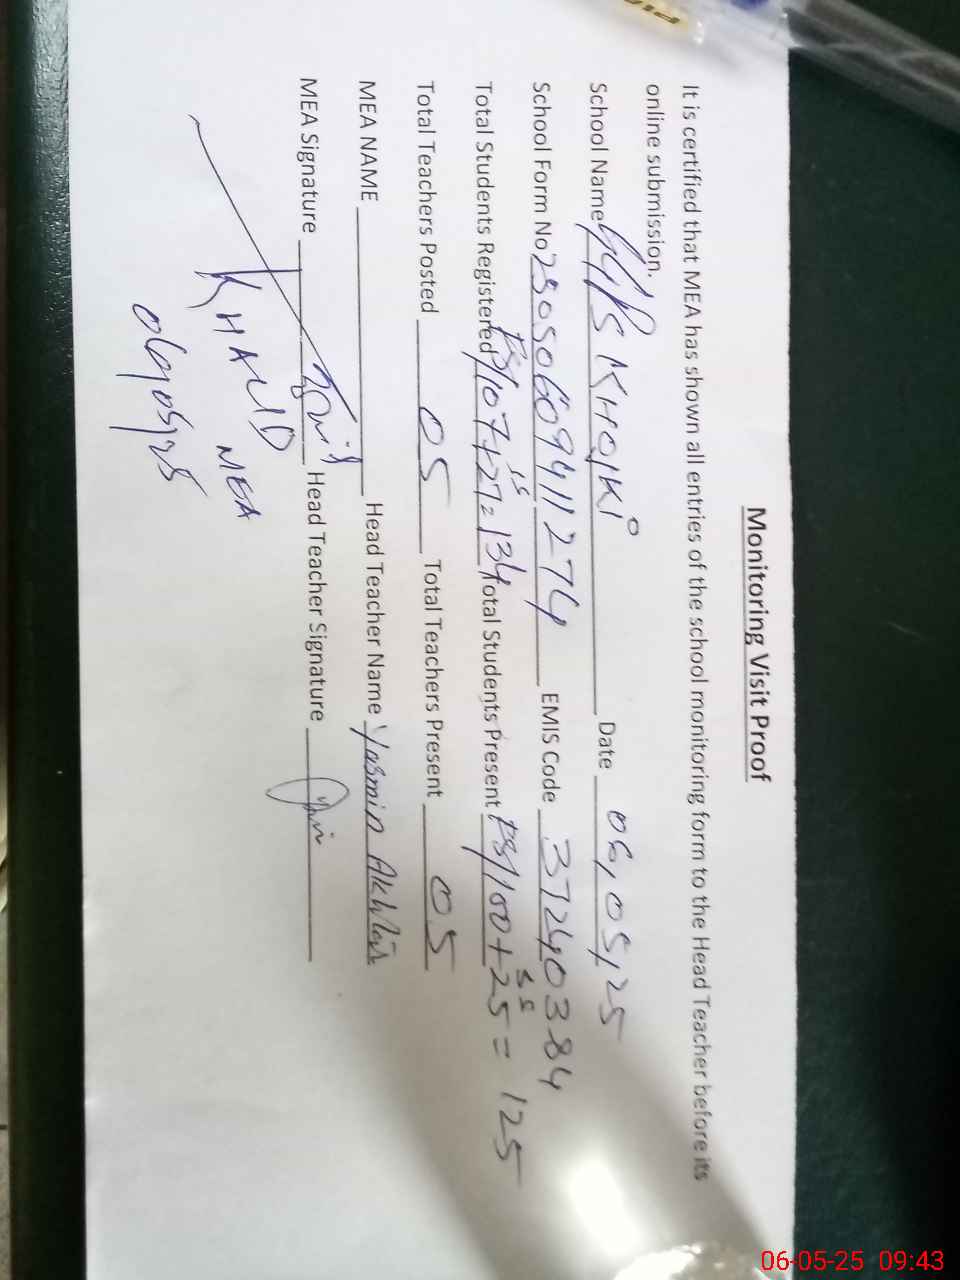 Monitoring Visit Proof
It is certified that MEA has shown all entries of the school monitoring form to the Head Teacher before its
online submission.
School Name KHOJKI Date 06,05,25
School Form No 25050609411274 EMIS Code 37240384
Total Students Registered 107+27=134 Total Students Present 100+25=125
Total Teachers Posted 05 Total Teachers Present 05
MEA NAME Head Teacher Name Yasmin Akhtar
MEA Signature Head Teacher Signature
KHALID
MEA
06/05/25
06-05-25 09:43